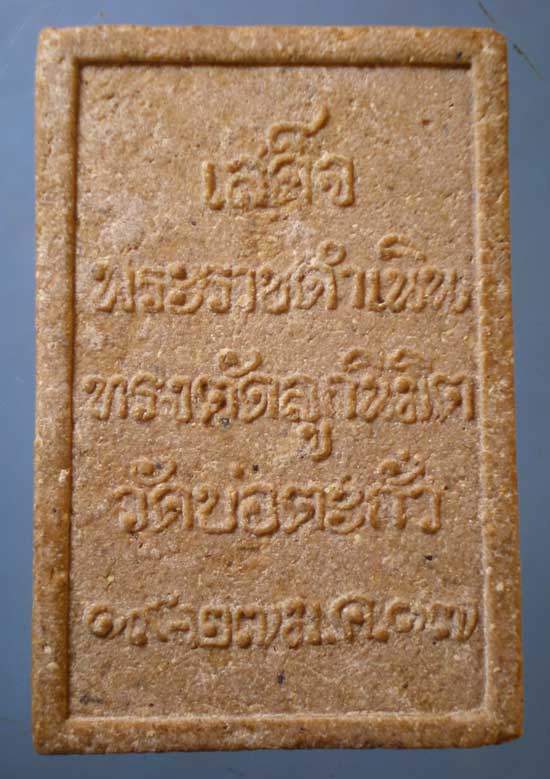 เสด็จ
พระราชดำเนิน
ทรงตัดลูกนิมิต
วัดบ่อตะกั่ว
๑๙-๒๗ม.ค.๑๗